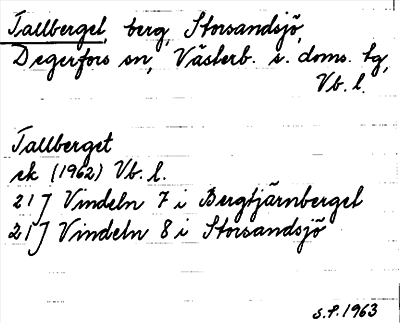 Tallberget, berg, Storsandsjö,
Degerfors sn, Västerb. s. doms. tg,
Vb. l.
Tallberget
ek (1962) Vb. l.
21 J Vindeln 7 i Bergtjärnberget
21 J Vindeln 8 i Storsandsjö
S.P. 1963